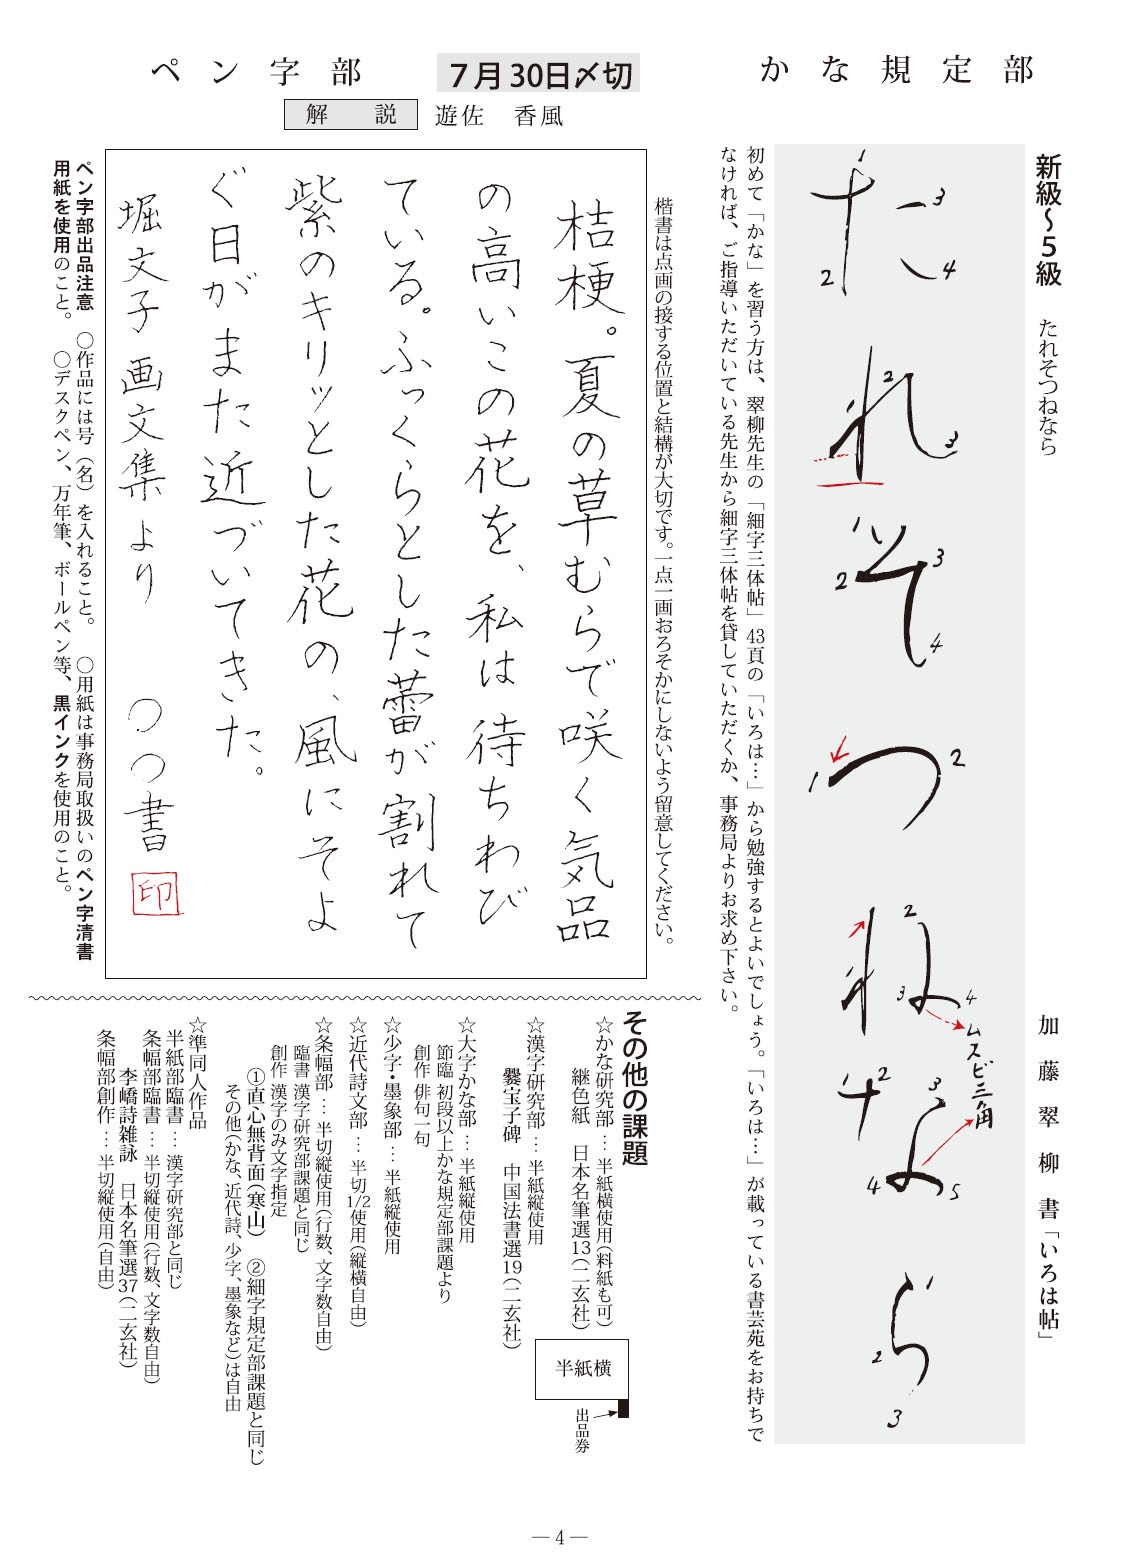 かな規定部
新級〜5級　たれそつねなら
加藤翠柳書「いろは帖」
た 1 2 3 4
れ 2 3
そ 1 2 3 4
つ 1 2
ね 2 3 4
ムスビ三角
な 2 3 4 5
ら 2 3
初めて「かな」を習う方は、翠柳先生の「細字三体帖」43頁の「いろは…」から勉強するとよいでしょう。「いろは…」が載っている書芸苑をお持ちで
なければ、ご指導いただいている先生から細字三体帖を貸していただくか、事務局よりお求め下さい。
ペン字部
7月30日〆切
解説　遊佐　香風
楷書は点画の接する位置と結構が大切です。一点一画おろそかにしないよう留意してください。
桔梗。夏の草むらで咲く気品
の高いこの花を、私は待ちわび
ている。ふっくらとした蕾が割れて
紫のキリッとした花の、風にそよ
ぐ日がまた近づいてきた。
堀文子画文集より　〇〇書　印
ペン字部出品注意　〇作品には号（名）を入れること。　〇用紙は事務局取扱いのペン字清書
用紙を使用のこと。　〇デスクペン、万年筆、ボールペン等、黒インクを使用のこと。
その他の課題
☆かな研究部…半紙横使用（料紙も可）
継色紙　日本名筆選13（二玄社）
半紙横
出品券
☆漢字研究部…半紙縦使用
爨宝子碑　中国法書選19（二玄社）
☆大字かな部…半紙縦使用
節臨 初段以上かな規定部課題より
創作 俳句一句
☆少字・墨象部…半紙縦使用
☆近代詩文部…半切1/2使用（縦横自由）
☆条幅部…半切縦使用（行数、文字数自由）
臨書 漢字研究部課題と同じ
創作 漢字のみ文字指定
①直心無背面（寒山）　②細字規定部課題と同じ
その他（かな、近代詩、少字、墨象など）は自由
☆準同人作品
半紙部臨書…漢字研究部と同じ
条幅部臨書…半切縦使用（行数、文字数自由）
李嶠詩雑詠　日本名筆選37（二玄社）
条幅部創作…半切縦使用（自由）
― 4 ―